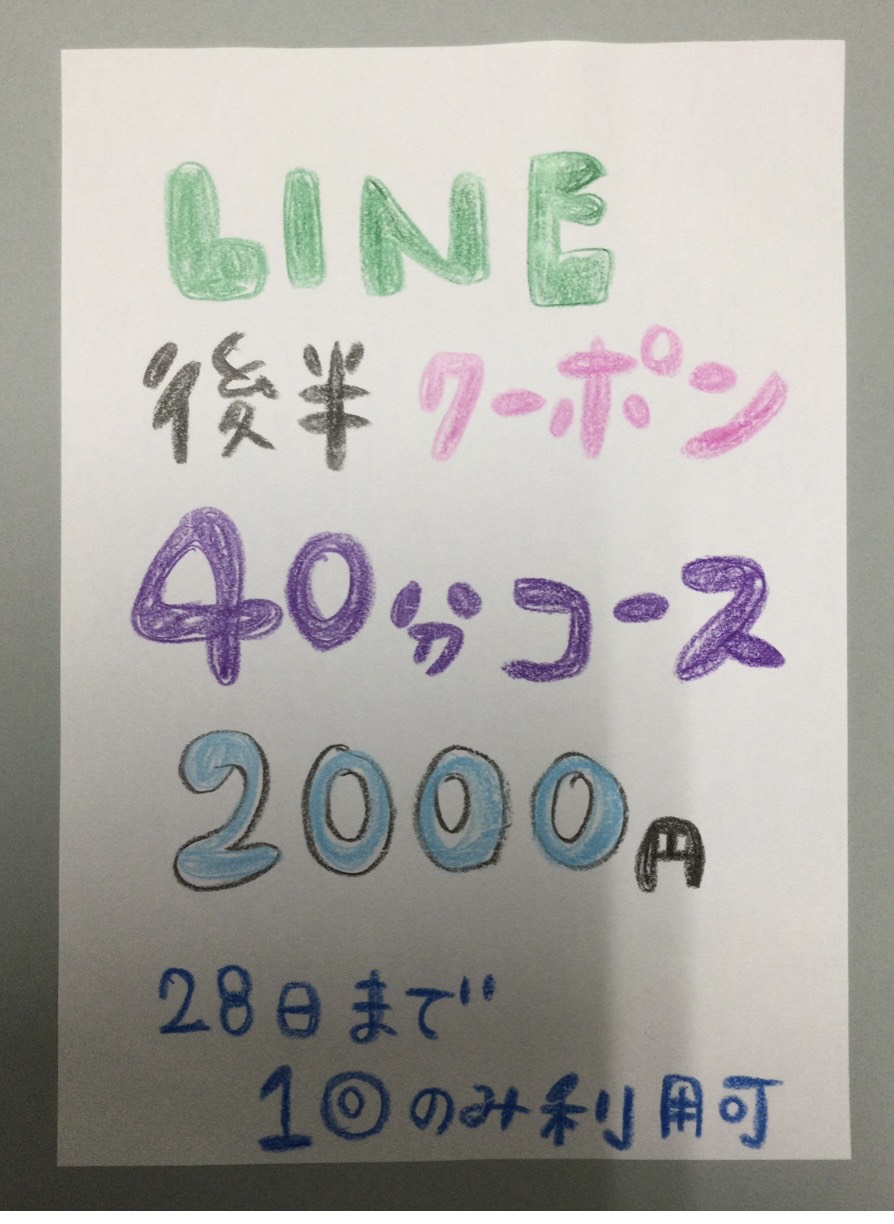 LINE
後半 クーポン
40分コース
2000円
28日まで
1回のみ利用可